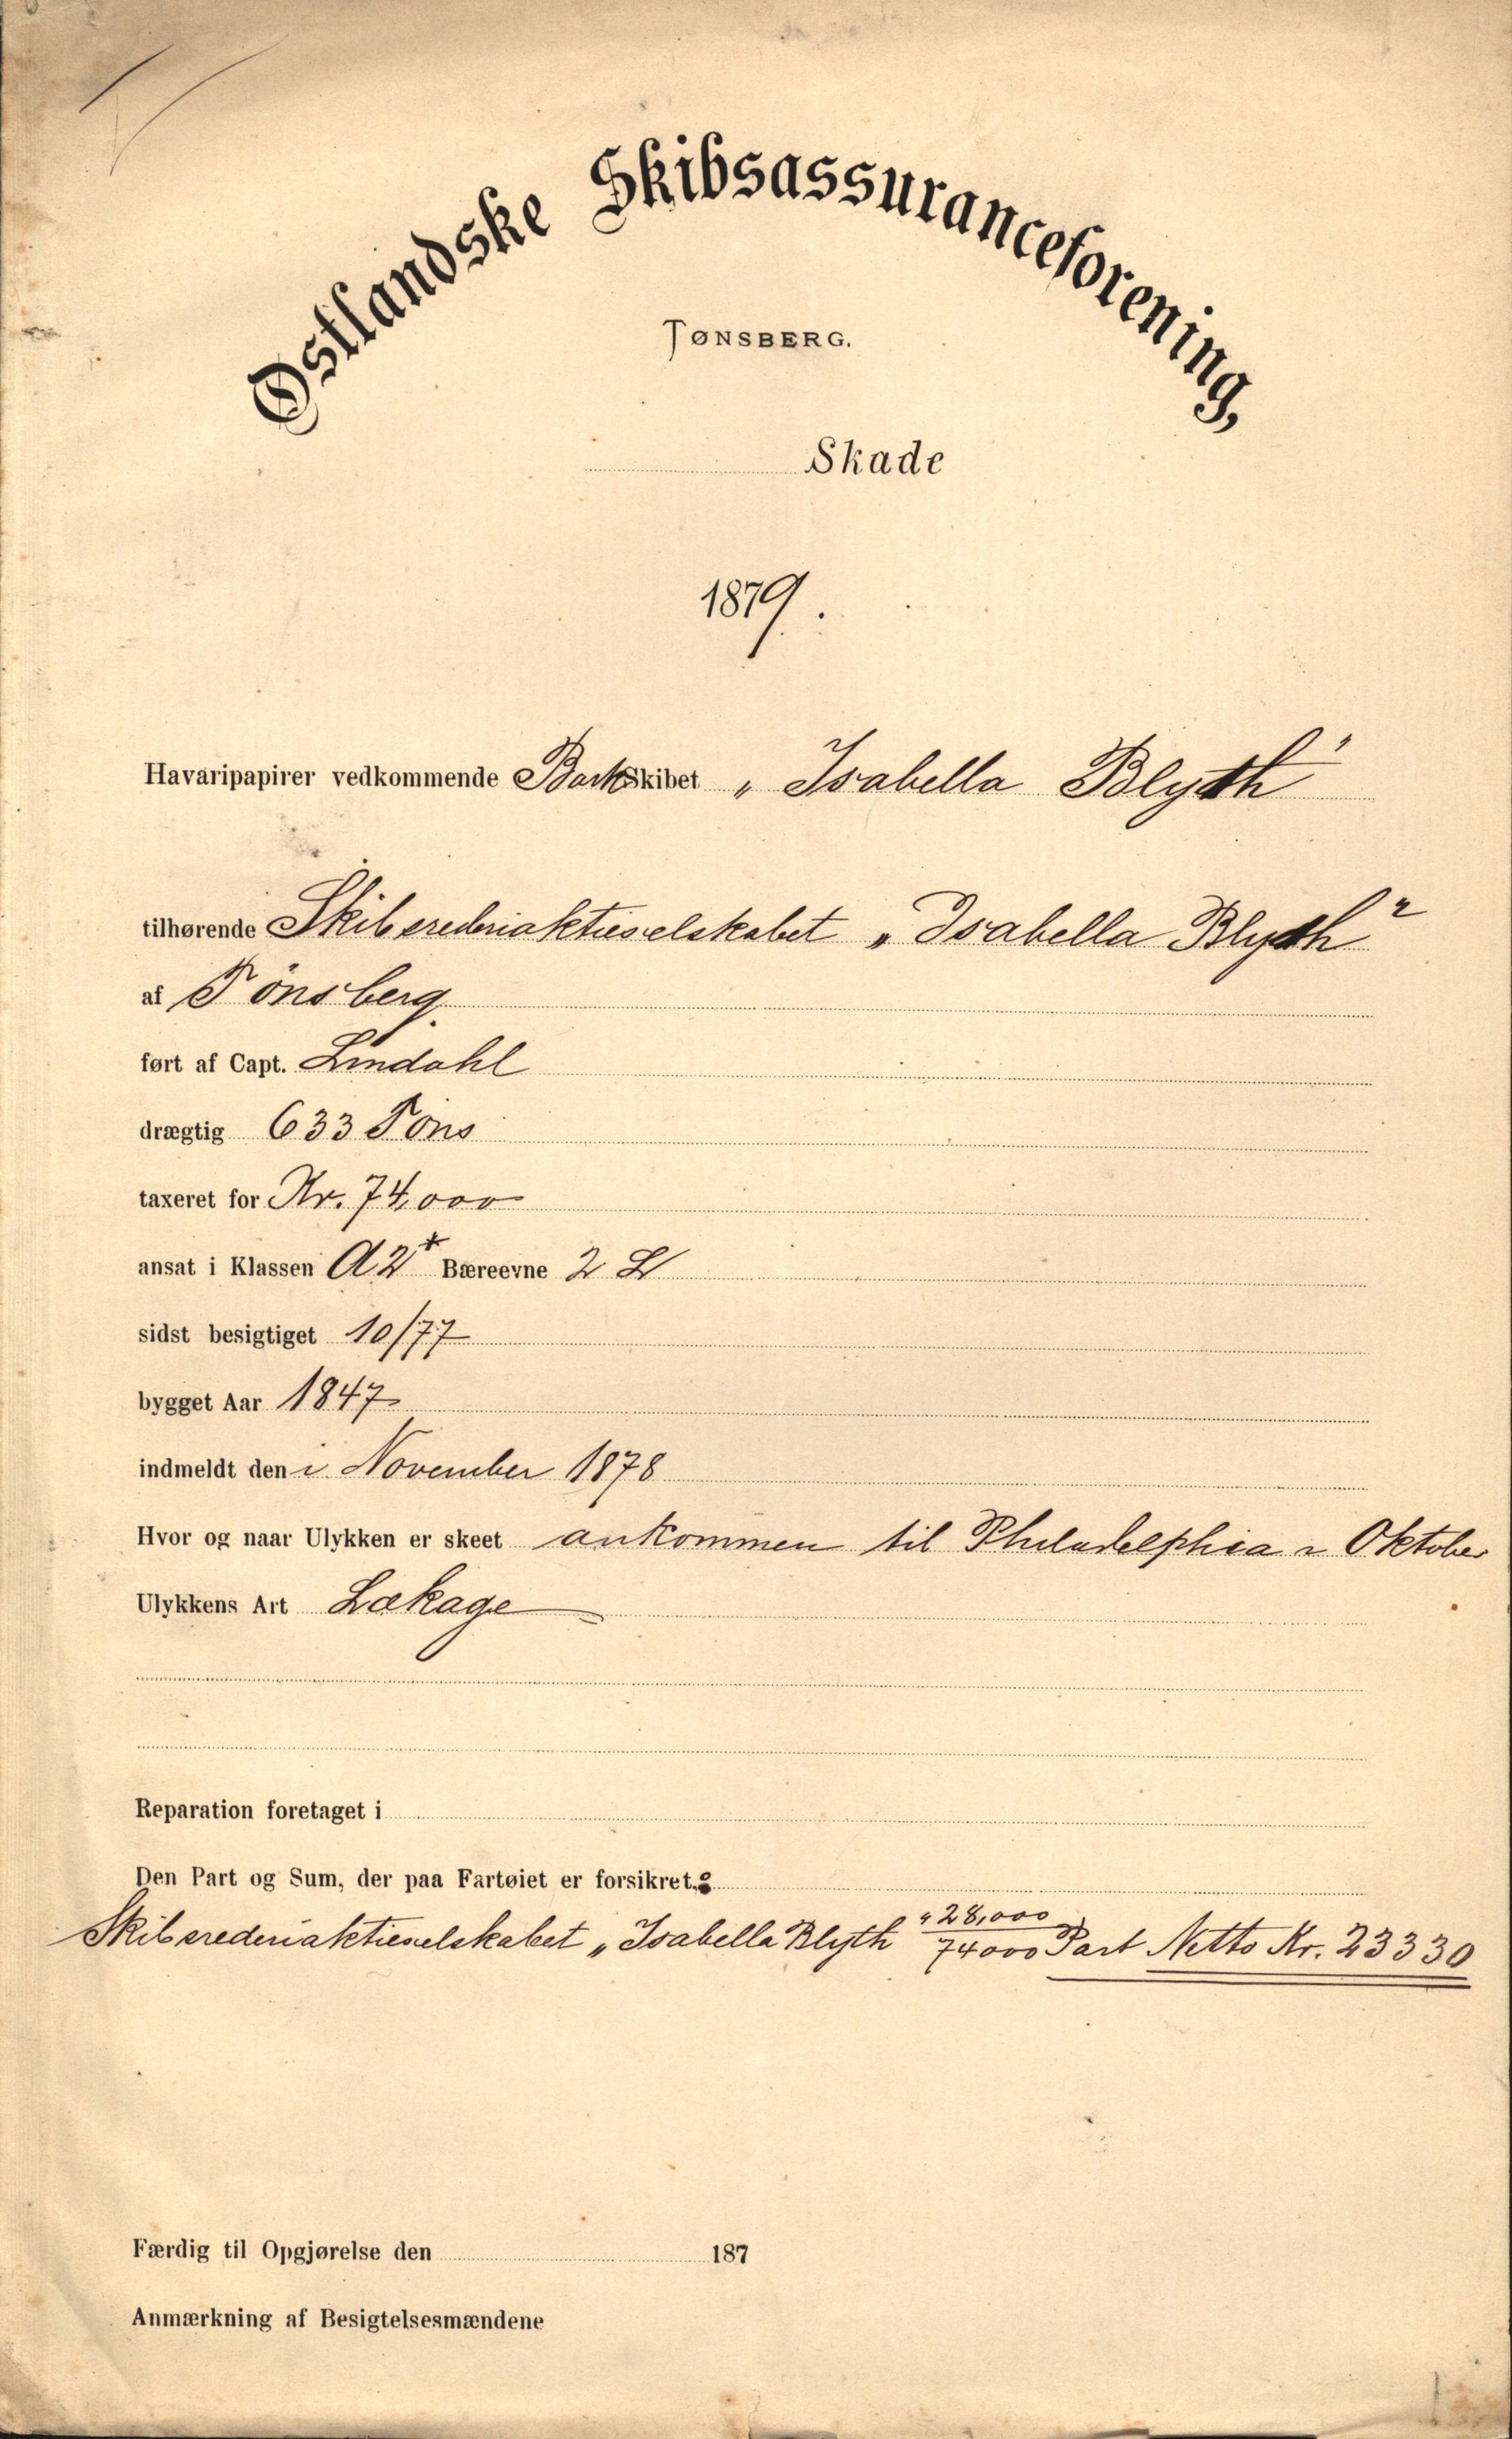 Østlandske Skibsassuranceforening,
TØNSBERG.
Skade
1879.
Havaripapirer vedkommende Bark Skibet „Isabella Blyth"
tilhørende Skibsrederiaktieselskabet „Isabella Blyth"
af Tönsberg
ført af Capt. Lindahl
drægtig 633 Tons
taxeret for Kr. 74,000
ansat i Klassen A2* Bæreevne 2 L
sidst besigtiget 10/77
bygget Aar 1847
indmeldt den i November 1878
Hvor og naar Ulykken er skeet ankommen til Philadelphia Oktober
Ulykkens Art Lækage
Reparation foretaget i
Den Part og Sum, der paa Fartøiet er forsikret:
Skibsrederiaktieselskabet „Isabella Blyth" 28,000/74000 Part Netto Kr. 23330
Færdig til Opgjørelse den 187
Anmærkning af Besigtelsesmændene